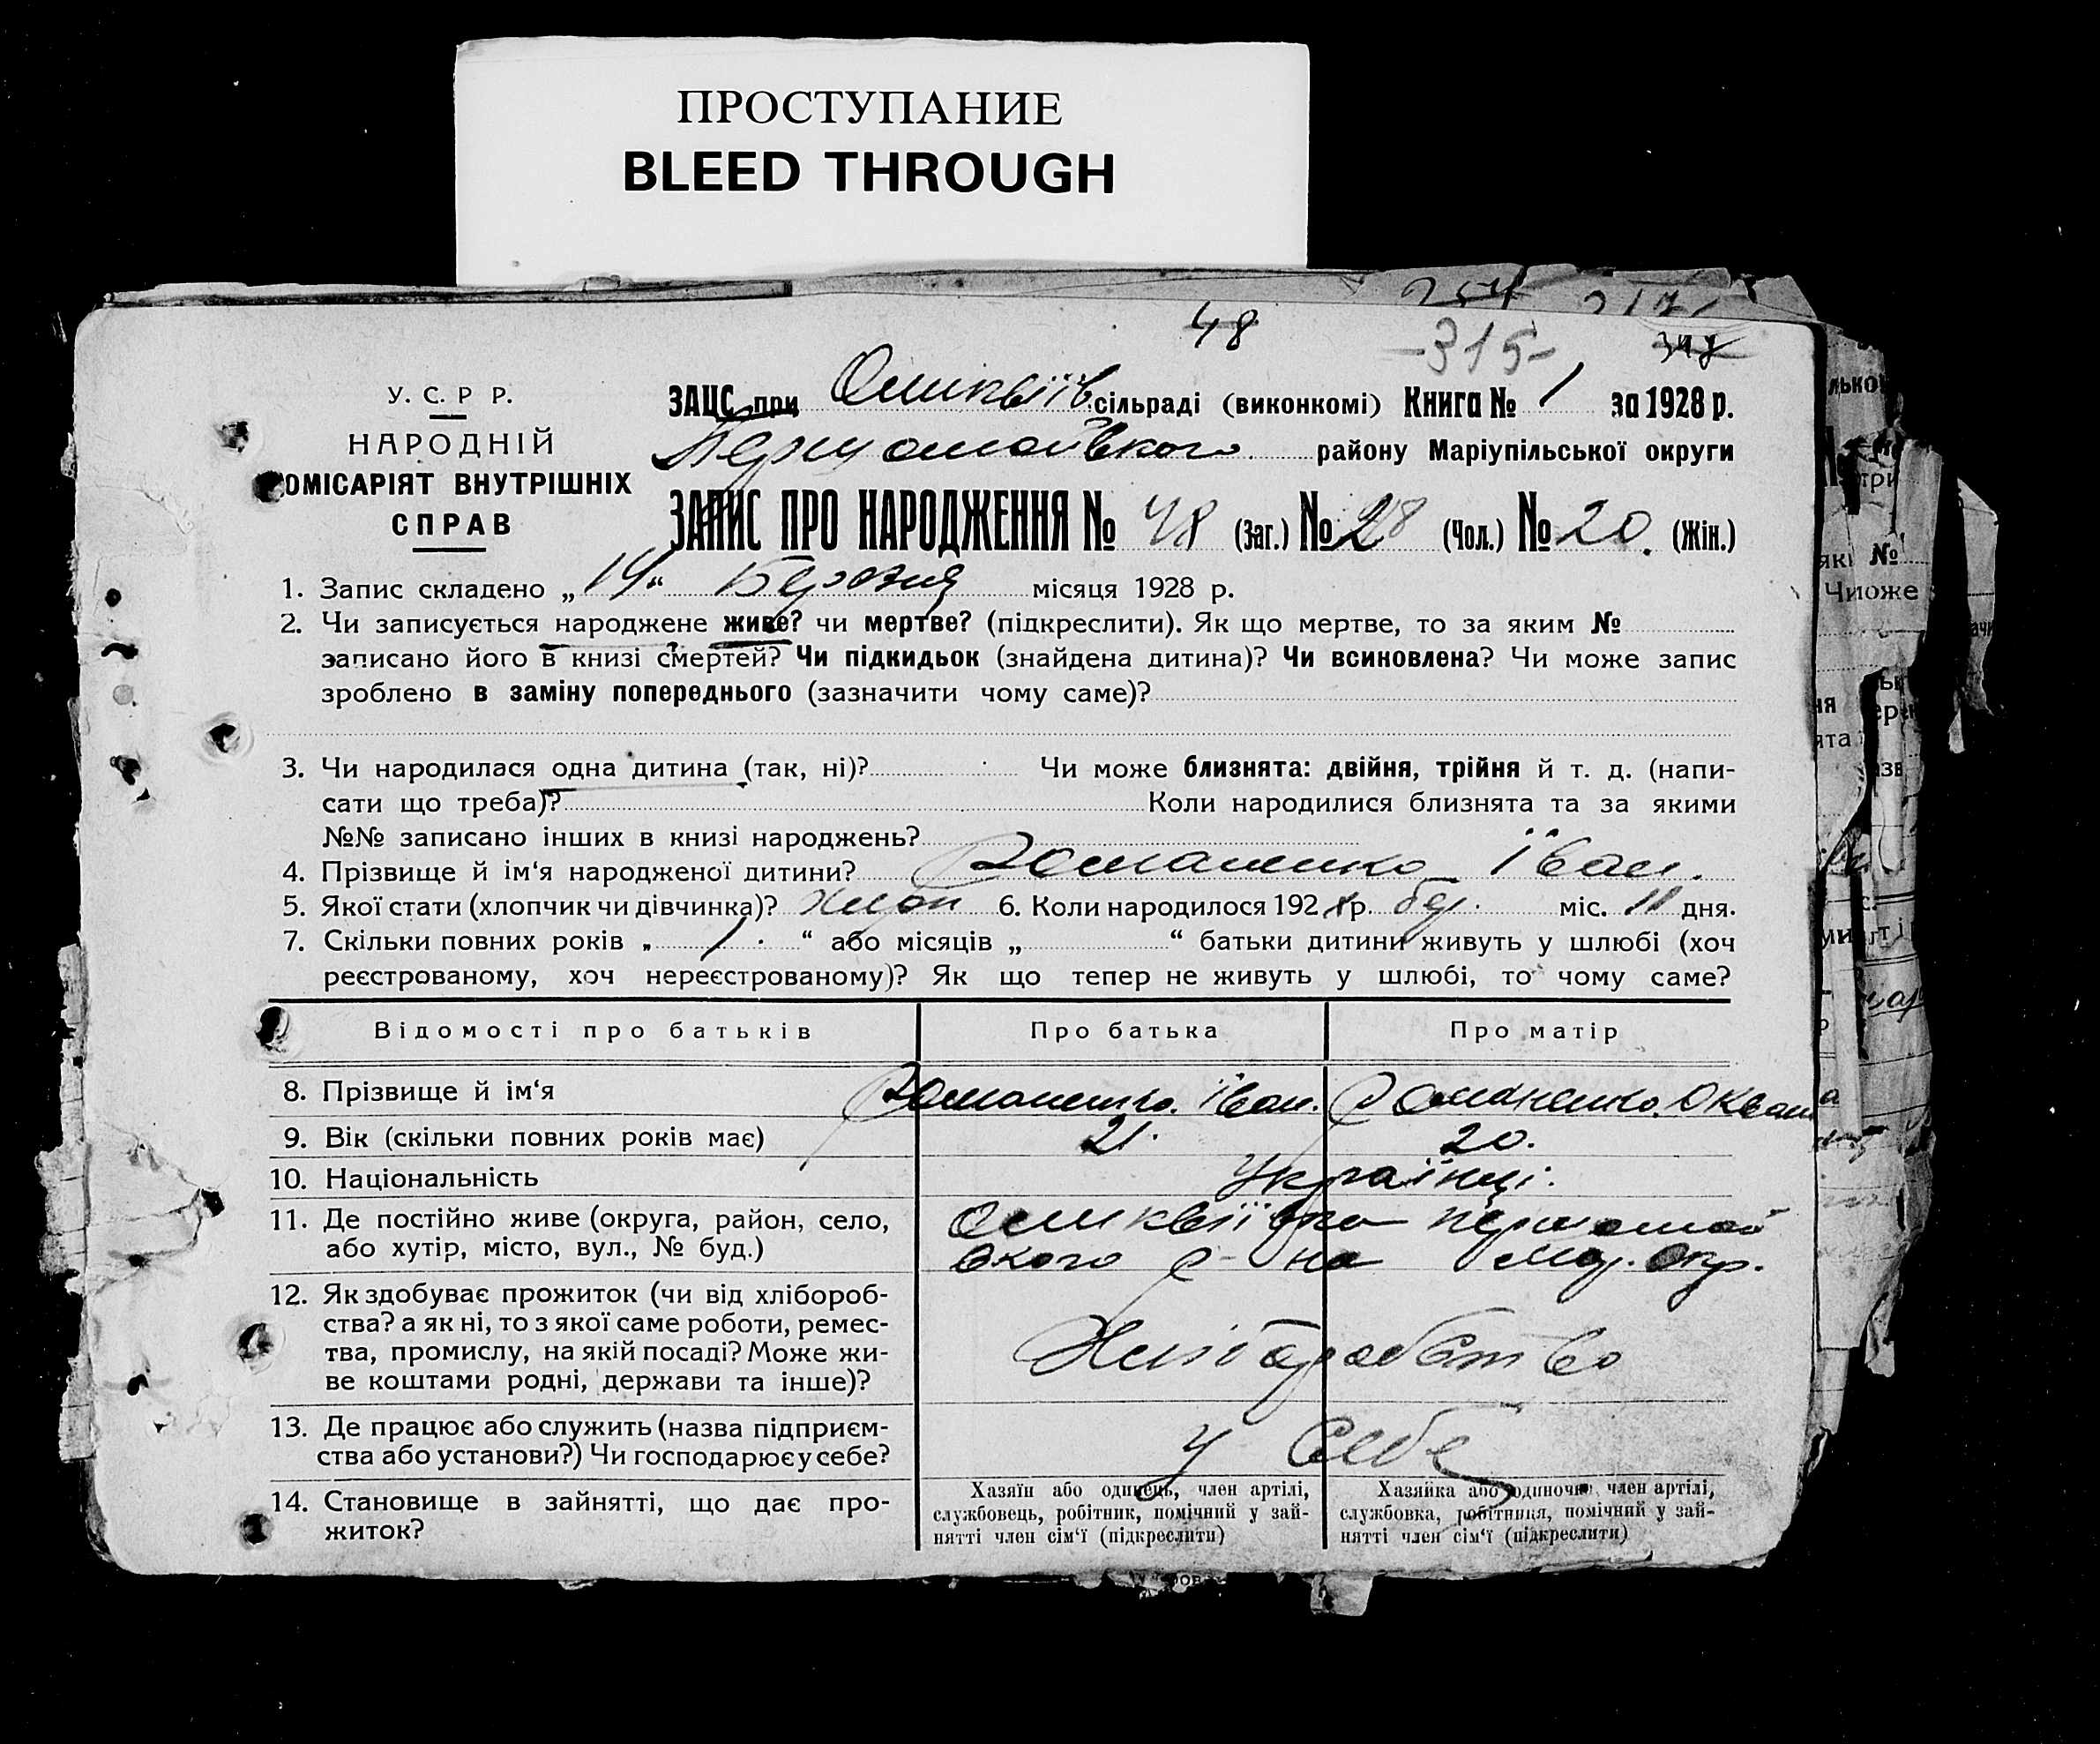 ПРОСТУПАНИЕ
BLEED THROUGH
48 -315-
У. С. Р Р.
НАРОДНІЙ
ОМІСАРІЯТ ВНУТРІШНІХ
СПРАВ
ЗАЦС при сільраді (виконкомі) Книга № 1 за 1928 р.
району Маріупільської округи
ЗАПИС ПРО НАРОДЖЕННЯ № 48 (Заг.) № 28 (Чол.) № 20. (Жін.)
1. Запис складено „14“ Березня місяця 1928 р.
2. Чи записується народжене живе? чи мертве? (підкреслити). Як що мертве, то за яким №
записано його в книзі смертей? Чи підкидьок (знайдена дитина)? Чи всиновлена? Чи може запис
зроблено в заміну попереднього (зазначити чому саме)?
3. Чи народилася одна дитина (так, ні)? Чи може близнята: двійня, трійня й т. д. (напи-
сати що треба)? Коли народилися близнята та за якими
№№ записано інших в книзі народжень?
4. Прізвище й ім‘я народженої дитини? Романенко Іван.
5. Якої стати (хлопчик чи дівчинка)? 6. Коли народилося 1928 р. бер. міс. 11 дня.
7. Скільки повних років „ 1. “ або місяців „ “ батьки дитини живуть у шлюбі (хоч
реєстрованому, хоч нереєстрованому)? Як що тепер не живуть у шлюбі, то чому саме?
Відомості про батьків Про батька Про матір
8. Прізвище й ім‘я Романенко. Іван. Романенко.
9. Вік (скільки повних років має) 21. 20.
10. Національність Українці.
11. Де постійно живе (округа, район, село,
або хутір, місто, вул., № буд.) вкого р-на Мар. Окр.
12. Як здобуває прожиток (чи від хлібороб-
ства? а як ні, то з якої саме роботи, ремес-
тва, промислу, на якій посаді? Може жи-
ве коштами родні, держави та інше)?
Хліборобство
13. Де працює або служить (назва підприєм-
ства або установи?) Чи господарює у себе?
у себе
14. Становище в зайнятті, що дає про-
житок?
Хазяїн або одинець, член артілі,
службовець, робітник, помічний у зай-
нятті член сім‘ї (підкреслити)
Хазяйка або одиночка член артілі,
службовка, робітниця, помічний у зай-
нятті член сім‘ї (підкреслити)